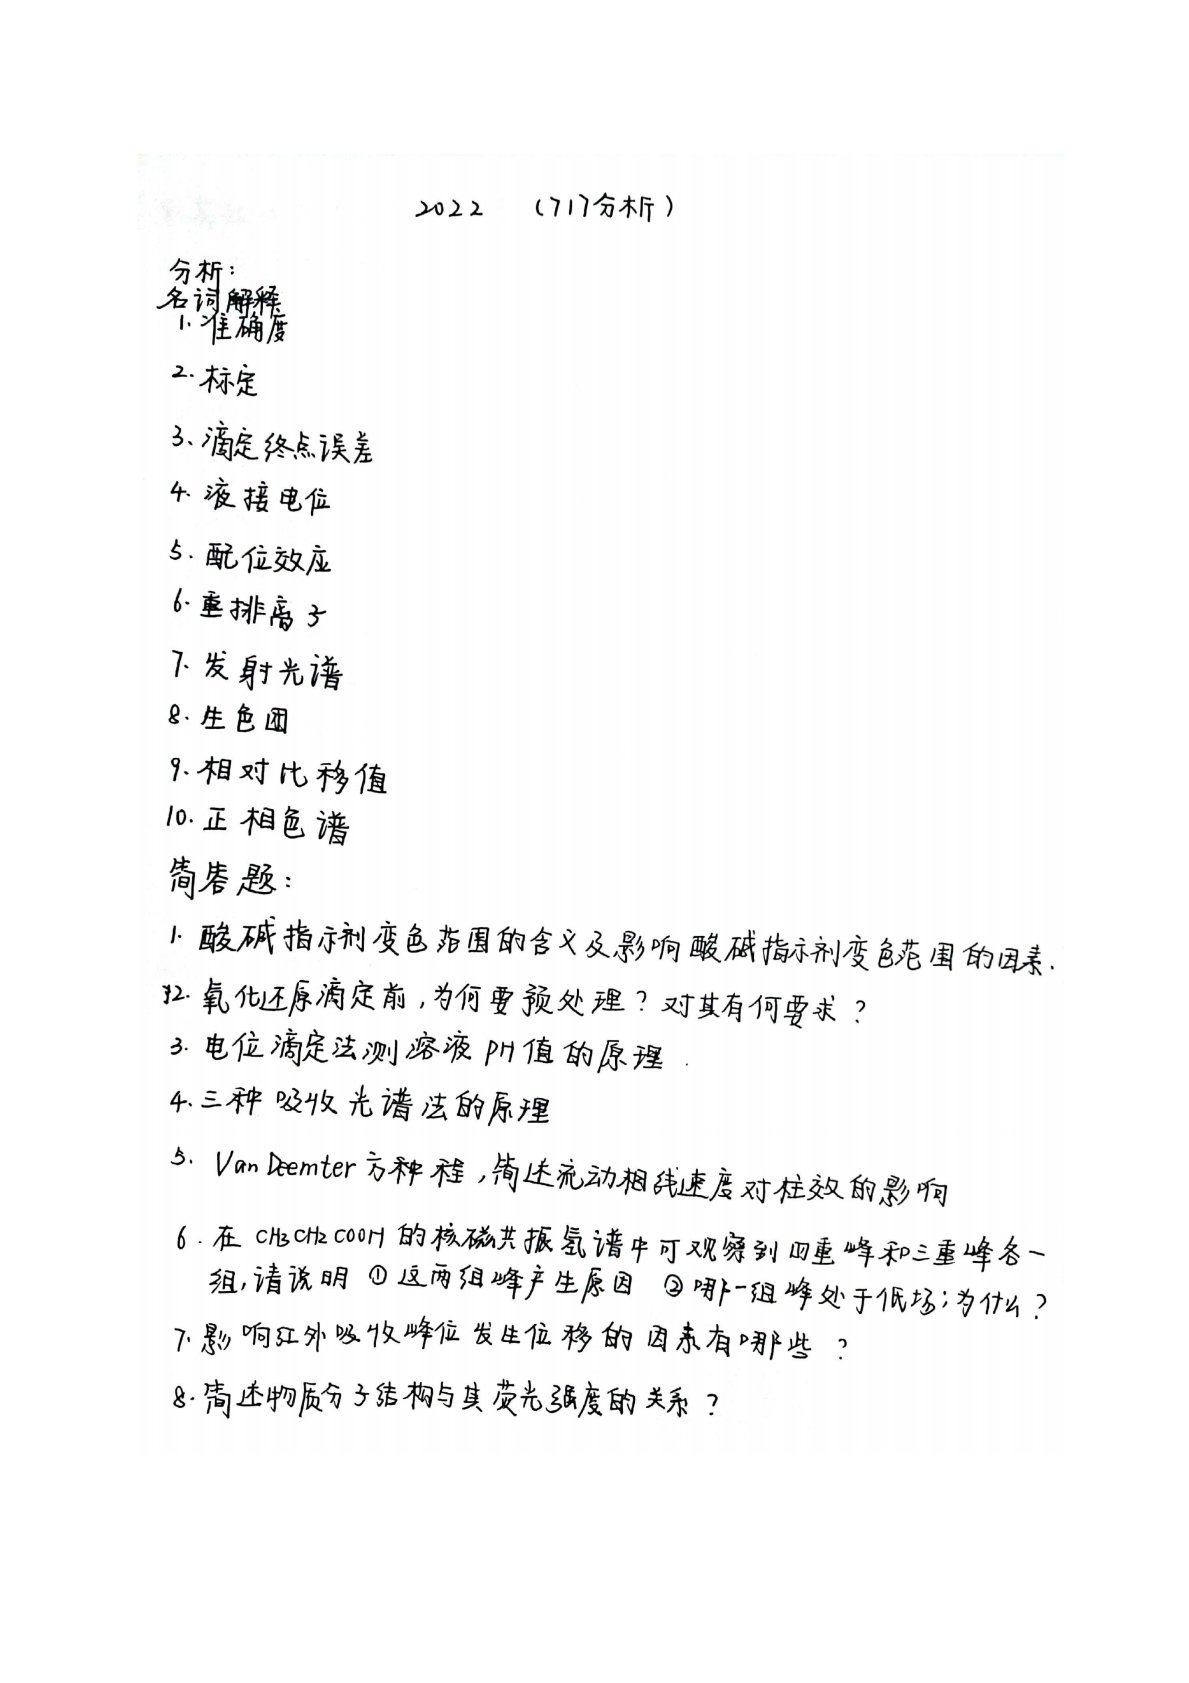 2022 （717分析）
分析：
名词解释
1. 准确度
2. 标定
3、滴定终点误差
4. 液接电位
5. 配位效应
6. 重排离子
7. 发射光谱
8. 生色团
9. 相对比移值
10. 正相色谱
简答题：
1. 酸碱指示剂变色范围的含义及影响酸碱指示剂变色范围的因素.
2. 氧化还原滴定前，为何要预处理？对其有何要求？
3. 电位滴定法测溶液PH值的原理.
4. 三种吸收光谱法的原理
5. Van Deemter方种程，简述流动相线速度对柱效的影响
6. 在CH3CH2COOH的核磁共振氢谱中可观察到四重峰和三重峰各一
组，请说明 ①这两组峰产生原因 ②哪一组峰处于低场；为什么？
7. 影响红外吸收峰位发生位移的因素有哪些？
8. 简述物质分子结构与其荧光强度的关系？